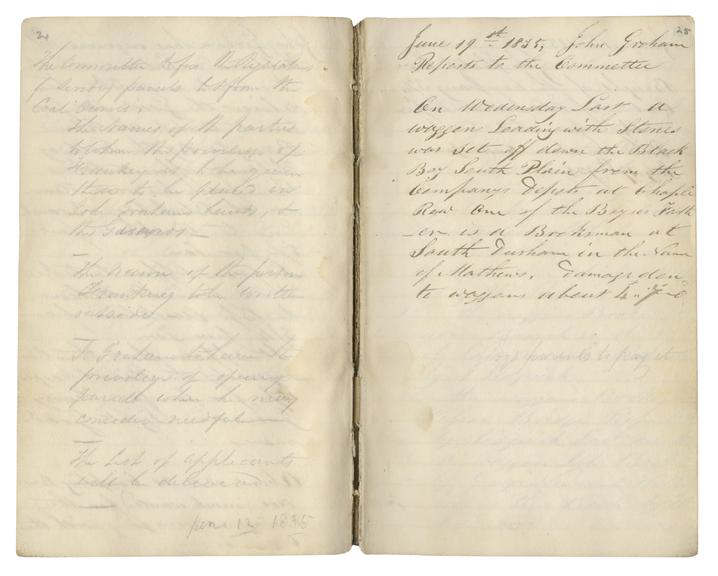 24
The Committee to fix the Regulations
for sending parcels to & from the
Coal
The names of the parties
to whom the privilege of
is given
to be placed in
John Grahams hands, &
the
The name of the person
to be written
outside
J Graham to have the
privilege of opening
parcels when he may
consider needful
The List of applicants
will be
June 12 1835
25
June 19st 1835, John Graham
Reports to the Committee
On Wednesday Last a
waggon Loading with Stones
was set off down the Black
Boy South Plain from the
Companys Depots at Chaple
Row One of the Boyses Fath
-er is a Bronksman at
South Durham in the Name
of Mathews. Damage don
to waggons about